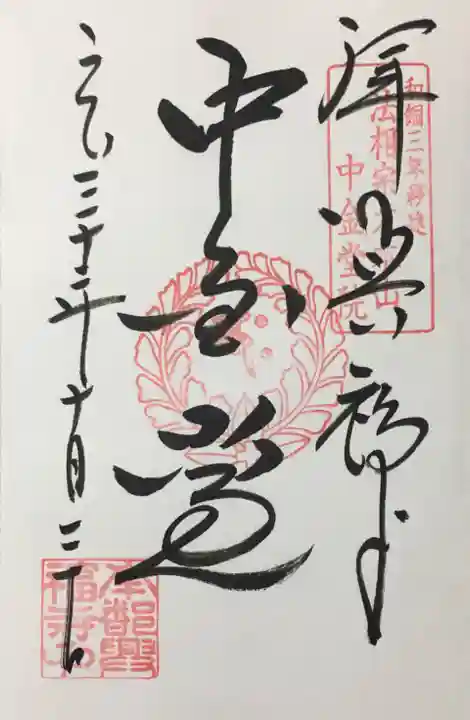 和銅三年
法相宗大本山
中金堂院
拝 興福寺
中金堂
平成三十年十月二十日
南都興
福寺印